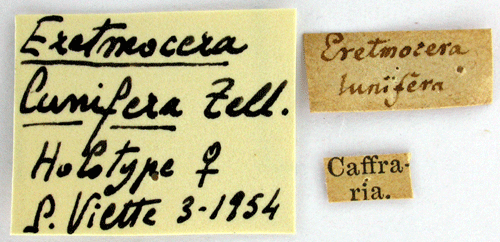 Eretmocera
lunifera Zell.
Holotype ♀
P. Viette 3-1954
Eretmocera
lunifera
Caffra-
ria.